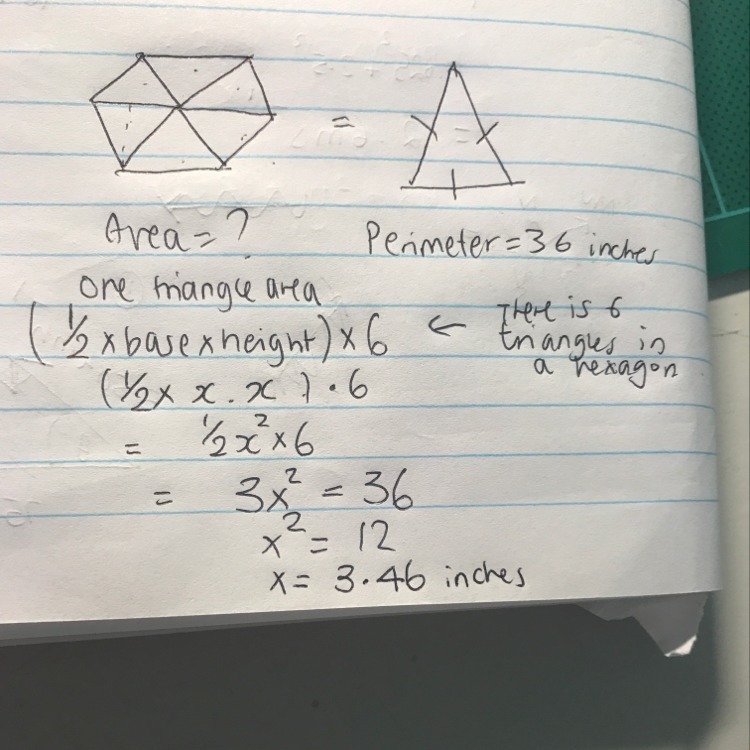 =
Area = ?
Perimeter = 36 inches
one triangle area
(1/2 x base x height) x 6 ← There is 6
triangles in
a hexagon
(1/2 x x . x ) · 6
= 1/2x² x 6
= 3x² = 36
x² = 12
x = 3.46 inches